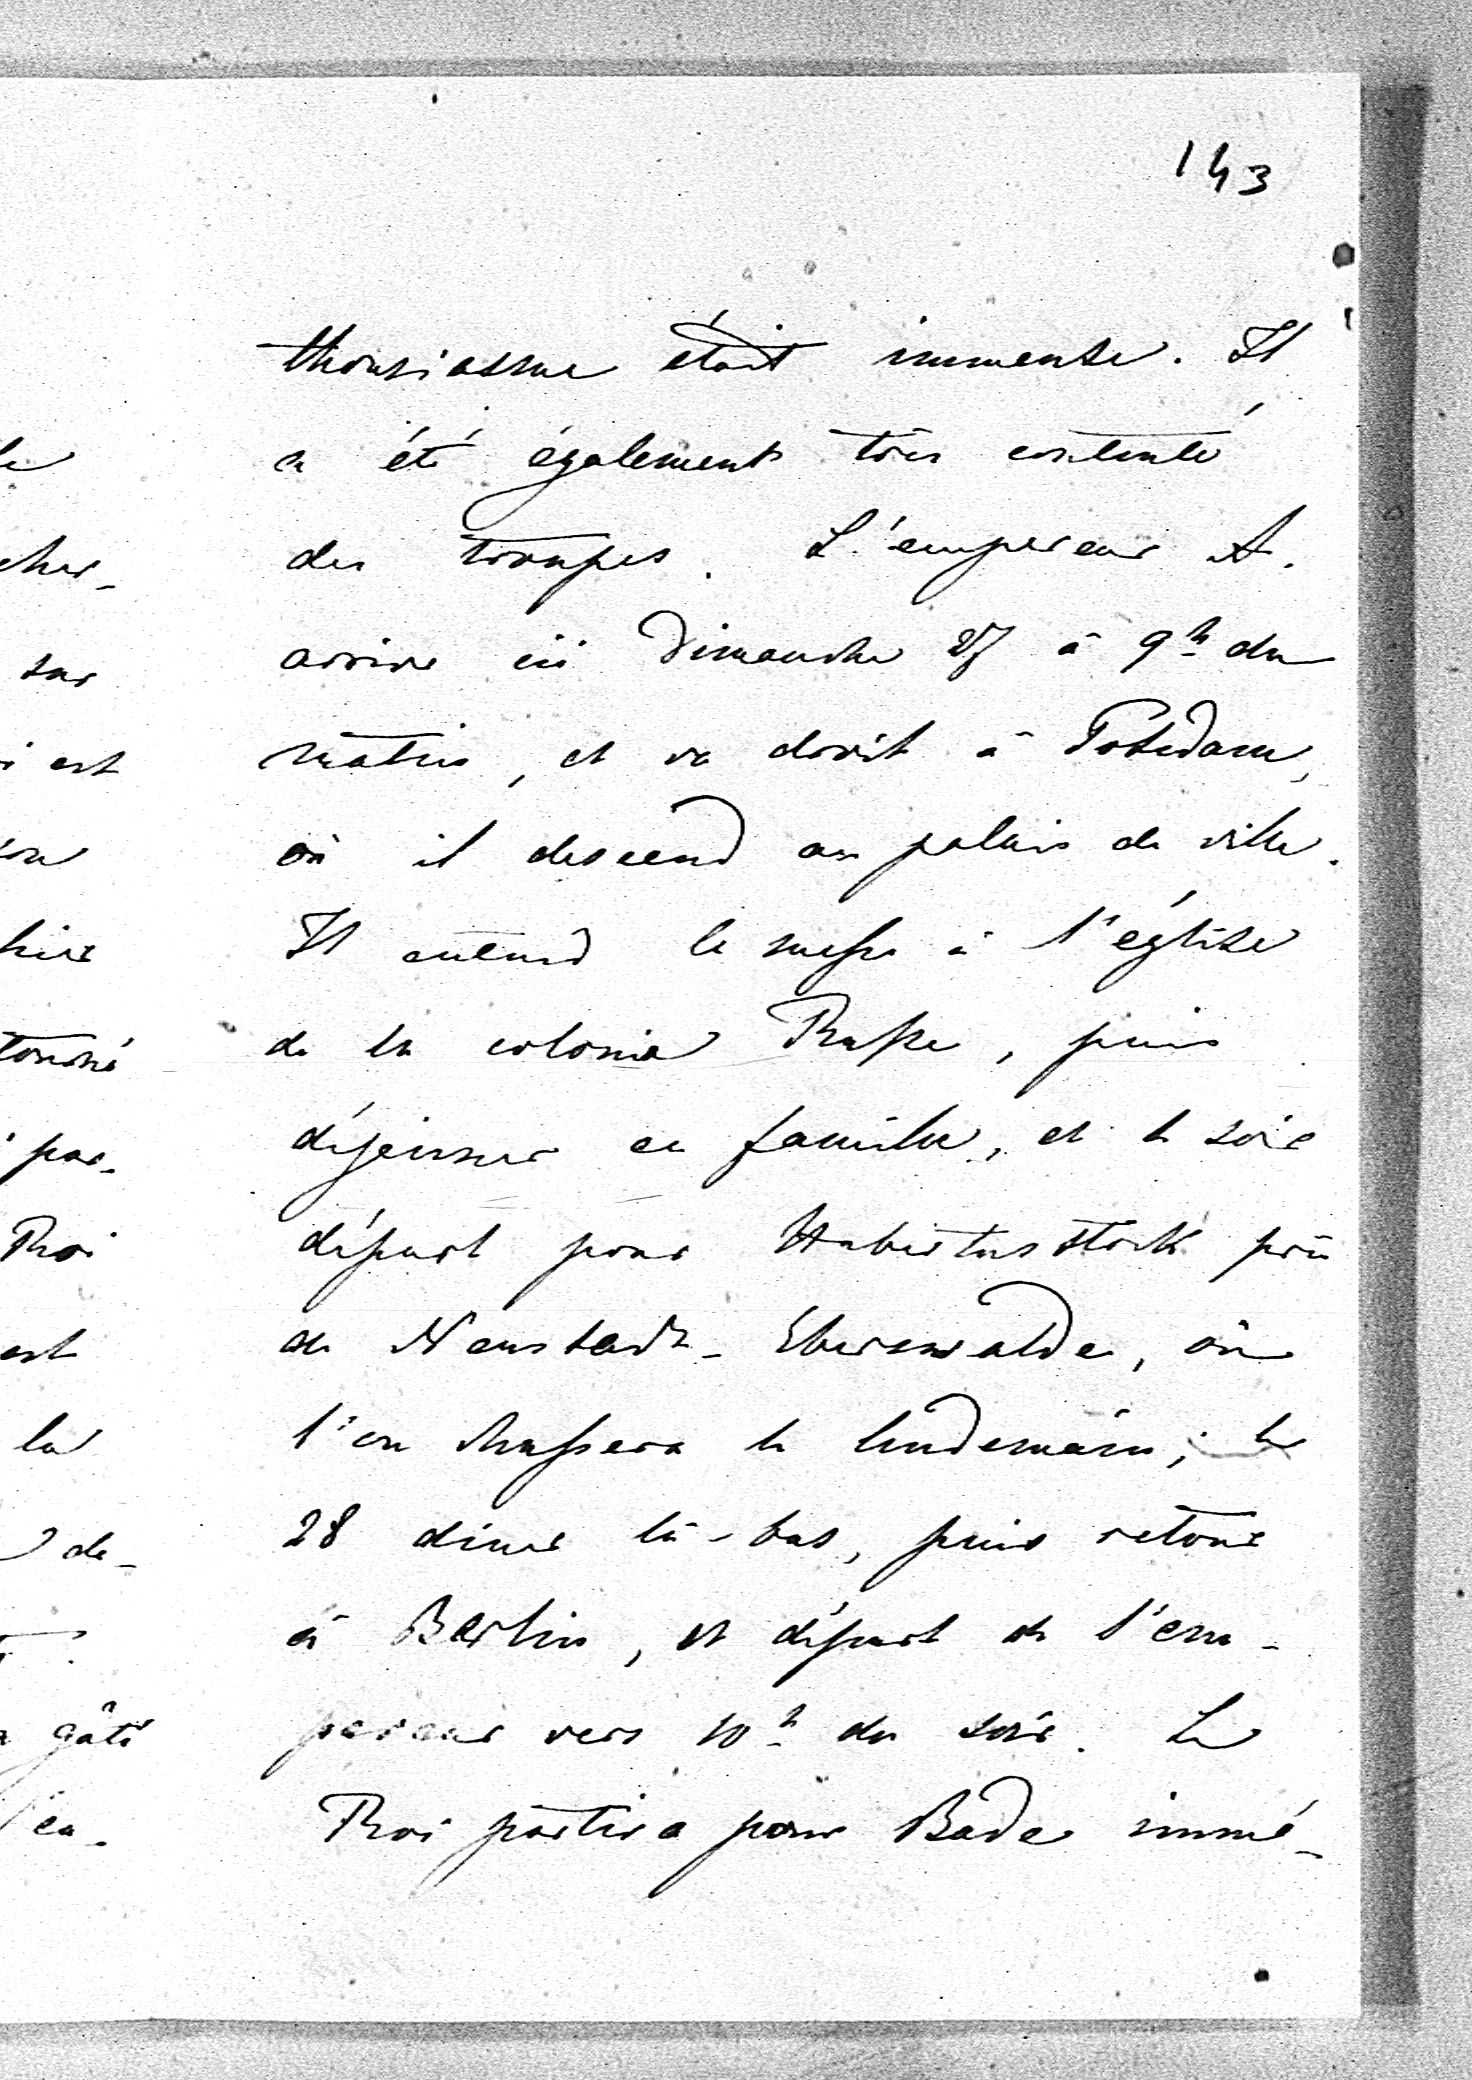 143
le
cher-
sur
i est
hier
tourné
par-
Roi
est
la
de-
gâté
en-
thousiasme était immense. Il
a été également très contenté
des troupes. L'empereur A.
arrive ici Dimanche 27 à 9h du
matin, et va droit à Potsdam,
où il descend au palais de ville.
Il entend la messe à l'église
de la colonie Russe, puis
déjeuner en famille, et le soir
départ pour Hubertusstock près
de Neustadt-Eberswalde, où
l'on chassera le lendemain; le
28 diner là-bas, puis retour
à Berlin, et départ de l'em-
pereur vers 10h du soir. Le
Roi partira pour Bade immé-